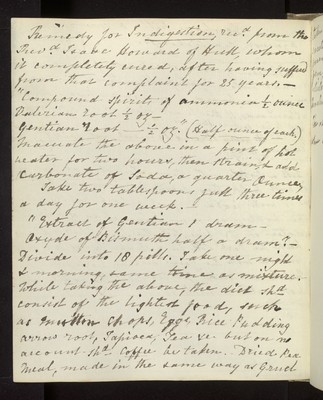 Remedy for Indigestion, rec.d from the
Rev.d Isaac Howard of Hull whom
it completely cured, after having suffered
from that complaint for 25 years.—
"Compound spirit of ammonia ½ ounce
Valerian root ½ oz —
Gentian root — ½ oz" (Half ounce of each)
Macerate the above in a pint of hot
water for two hours, then strain & add
Carbonate of Soda, a quarter Ounce,
Take two tablespoons full three times
a day for one week. —
"Extract of Gentian 1 dram —
Oxyde of Bismuth half a dram" —
Divide into 18 pills. Take one night
& morning, same time as mixture.
While taking the above, the diet sh.d
consist of the lightest food, such
as mutton chops, Eggs Rice Pudding
arrow root, Tapioca, Tea &c but on no
account sh.d Coffee be taken. Dried Pea
Meal, made in the same way as Gruel